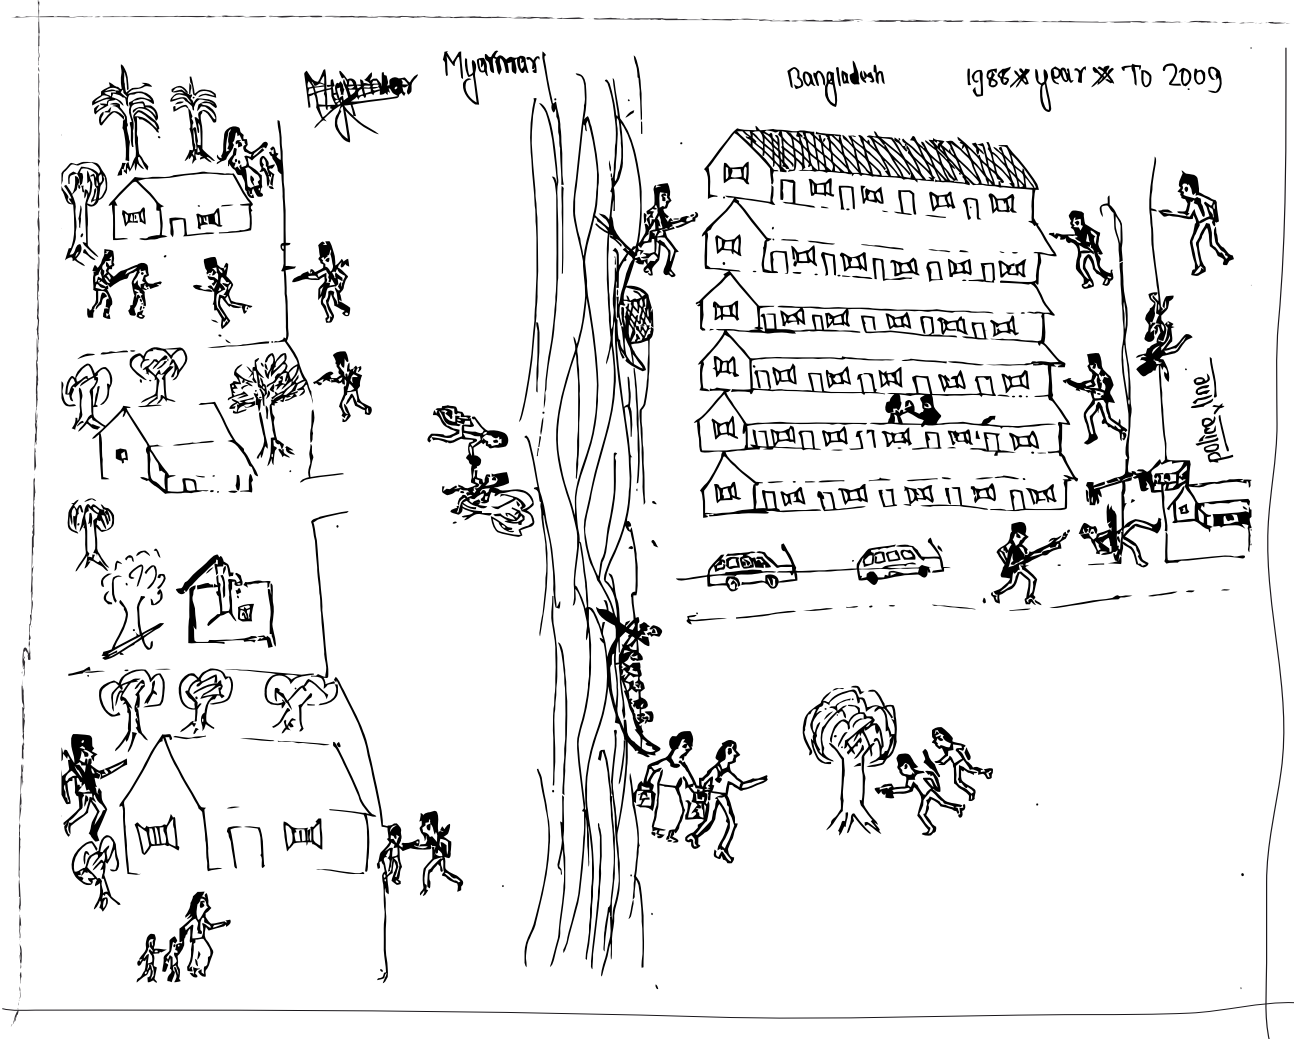 Myanmar
Myanmar
Bangladesh
1988 year To 2009
police line